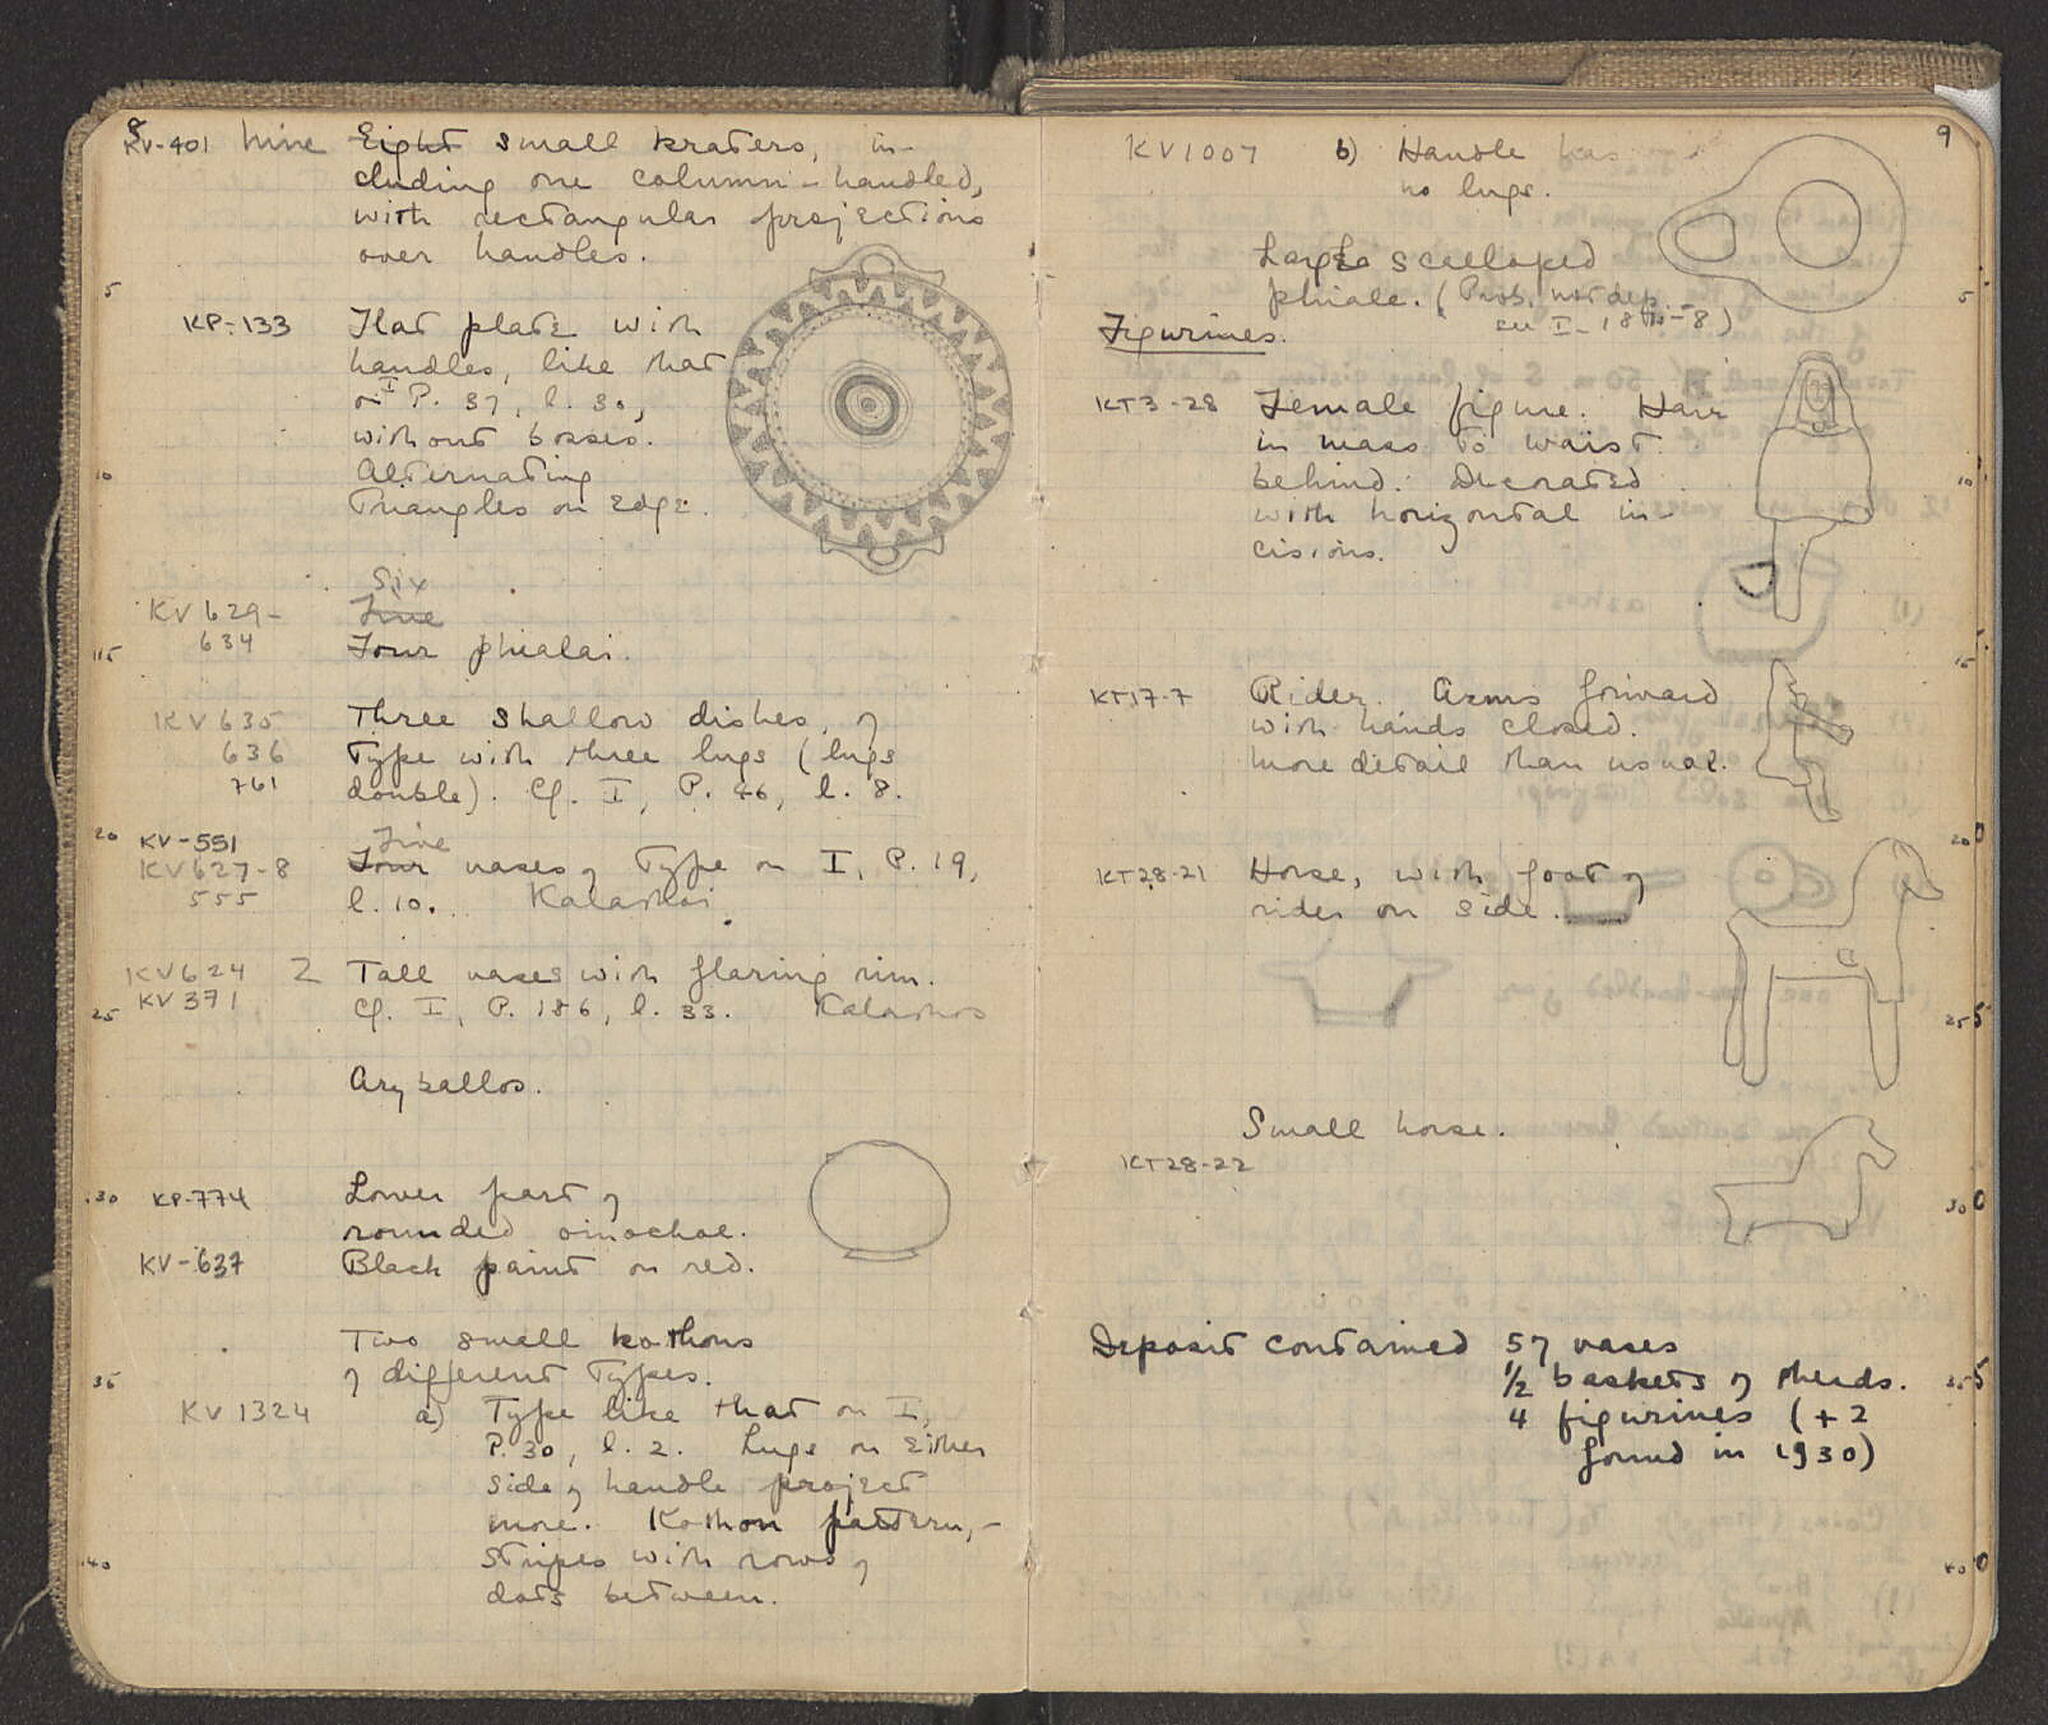 8
KV-401 Nine Eight small kraters, in-
cluding one column-handled,
with rectangular projections
over handles.
5
KP-133 Flat plate with
handles, like that
on I P. 37, l. 30,
without bosses.
10 Alternating
triangles on edge.
Six
KV 629- Five
634 Four phialai.
15
KV 635 Three shallow dishes, of
636 type with three lugs (lugs
761 double). Cf. I, P. 46, l. 8.
20 KV-551 Five
KV 627-8 Four vases of type on I, P. 19,
555 l. 10. Kalathoi
KV 624 2 Tall vases with flaring rim.
KV 371 Cf. I, P. 186, l. 33. Kalathos
25
Aryballos.
30 KP-774 Lower part of
rounded oinochoe.
KV-637 Black paint on red.
Two small kothons
35 of different types.
KV 1324 a) Type like that on I,
P. 30, l. 2. Lugs on either
side of handle project
more. Kothon pattern,-
40 stripes with rows of
dots between.
9
KV 1007 b) Handle has
no lugs.
Large scalloped
phiale. (Prob. not dep.- 5
see I-18 -8)
Figurines.
KT3-28 Female figure. Hair
in mass to waist
behind. Decorated 10
with horizontal in-
cisions.
15
KT17-7 Rider. Arms forward
with hands closed.
More detail than usual.
20
KT28-21 Horse, with foot of
rider on side.
25
Small horse.
KT28-22
30
Deposit contained 57 vases
1/2 baskets of sherds. 35
4 figurines (+2
found in 1930)
40